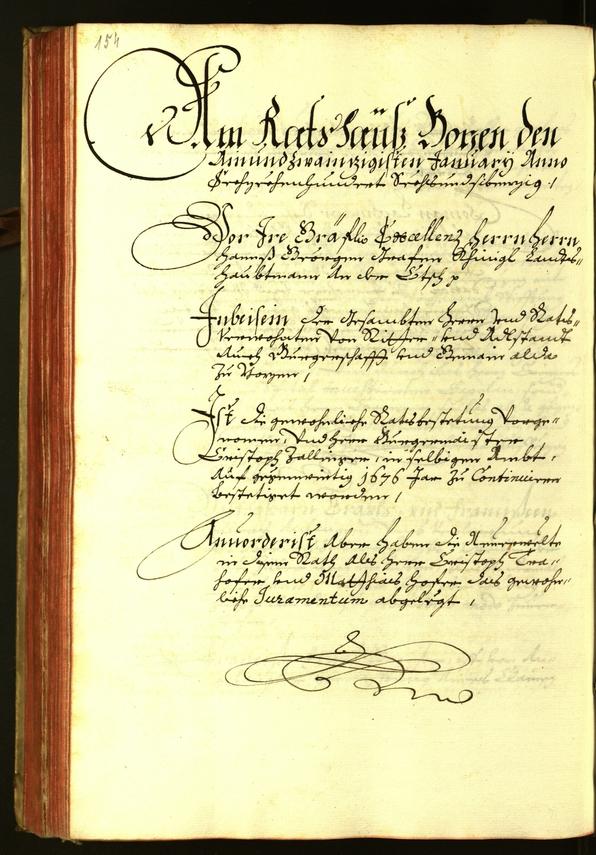 154
Am Ratshauß Bozen den
Ainundzwainzigisten January Anno
Sechzechenhundert Sechsundsibenzig /
Vor Ire Gräflic Excellenz Herrn Herrn
Hannß Geörgen Grafen Khünigl Landts-
haubtmann an der Etsch p
Inbeisein der Gesambten Herrn und Rats-
verwohnten von Ritter- und Adlstandt
Auch Burgerschafft und Gemain alda
zu Bozen /
Ist die gewohnliche Ratsbesetzung vorge-
nomen, und Herr Burgermaister
Christoph Zallinger, in selbigen Ambt,
auf gegenwertig 1676 Jar zu Continuieren
bestetiget worden /
Annorderist Aber haben die Neuerwelte
in disen Rath Als Herr Christoph Tra-
hofer und Matthias Hofer das gewohn-
liche Juramentum abgelegt /